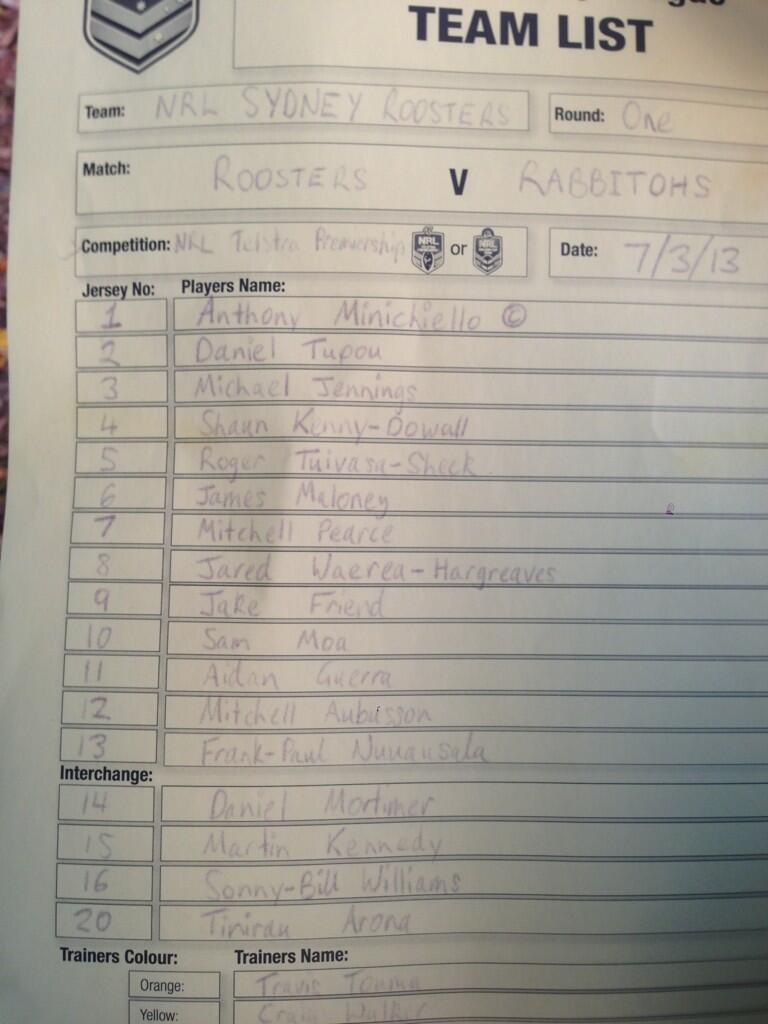 TEAM LIST
Team: NRL SYDNEY ROOSTERS Round: One
Match: ROOSTERS V RABBITOHS
Competition: NRL Telstra Premiership NRL or NRL Date: 7/3/13
Jersey No: Players Name:
1 Anthony Minichiello ©
2 Daniel Tupou
3 Michael Jennings
4 Shaun Kenny-Dowall
5 Roger Tuivasa-Sheck
6 James Maloney
7 Mitchell Pearce
8 Jared Waerea-Hargreaves
9 Jake Friend
10 Sam Moa
11 Aidan Guerra
12 Mitchell Aubusson
13 Frank-Paul Nuuausala
Interchange:
14 Daniel Mortimer
15 Martin Kennedy
16 Sonny-Bill Williams
20 Tinirau Arona
Trainers Colour: Trainers Name:
Orange: Travis Touma
Yellow: Craig Walker